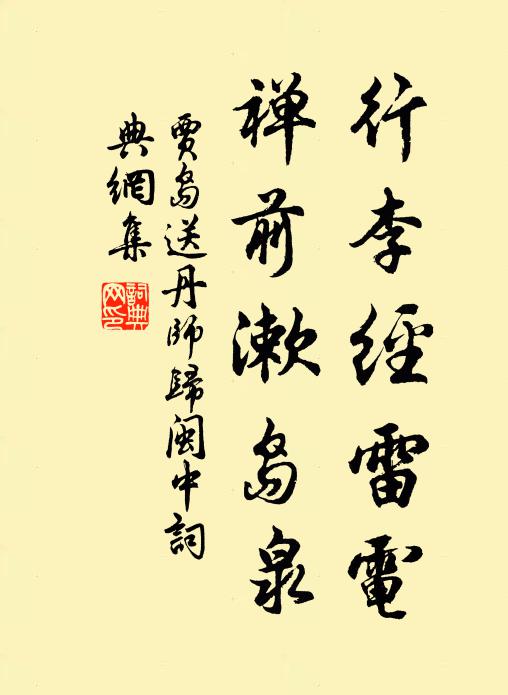 行李經雷電
禪前漱島泉
賈島送丹師歸閩中詞
典網集
詞典
网印